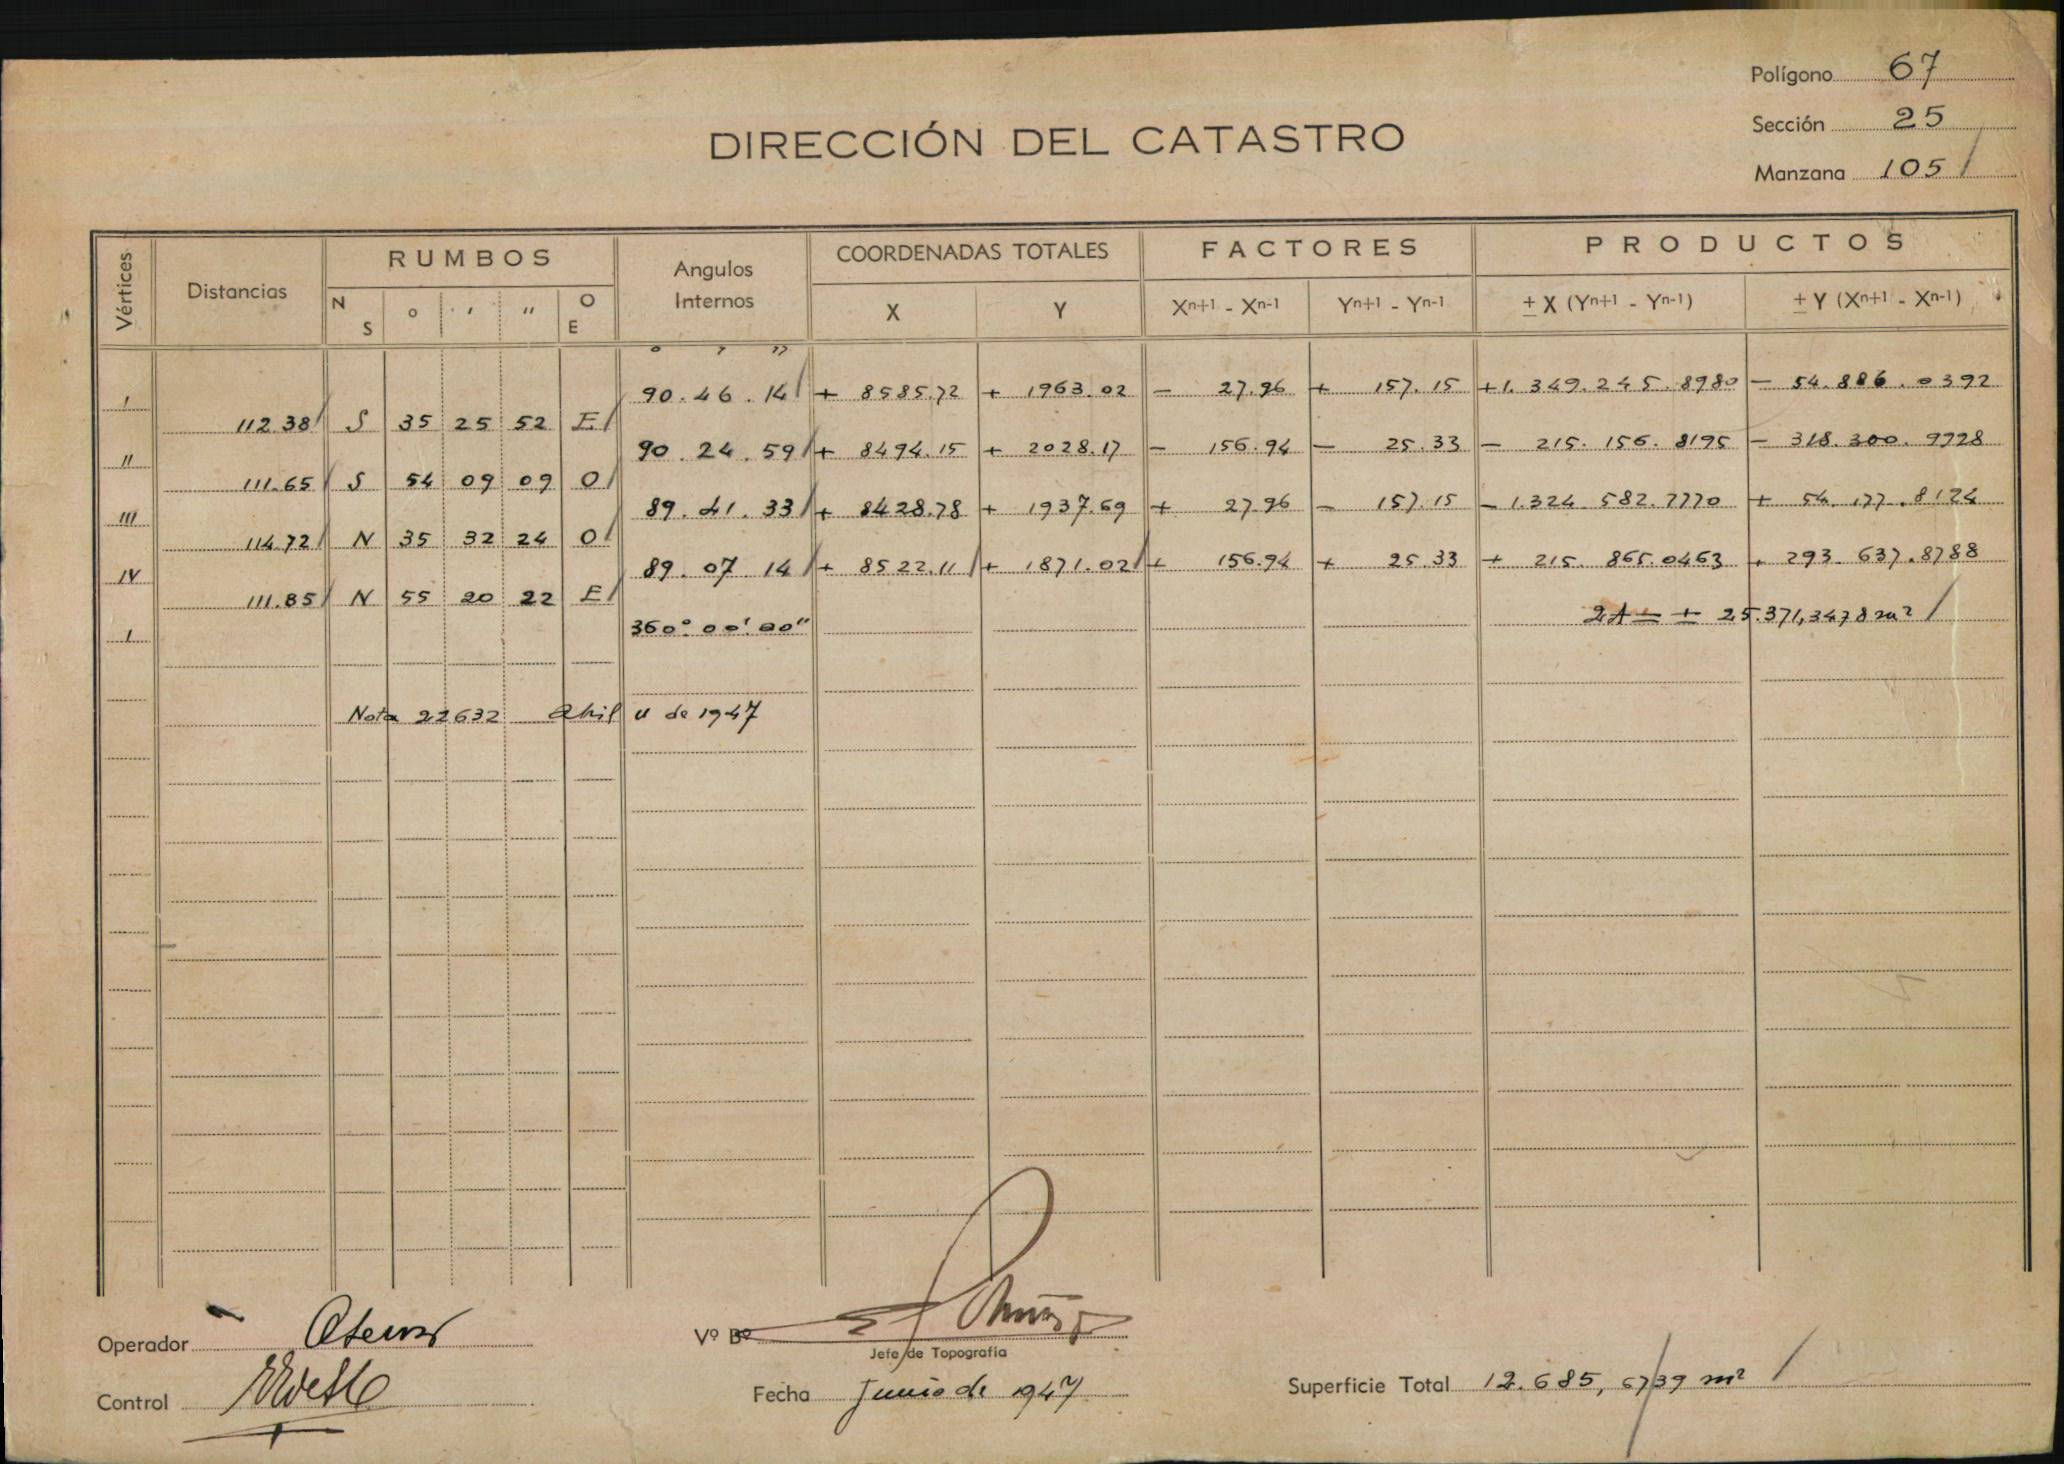 Polígono 67
Sección 25
Manzana 105
DIRECCIÓN DEL CATASTRO
Vértices Distancias RUMBOS Angulos Internos COORDENADAS TOTALES FACTORES PRODUCTOS
N S o ' '' O E X Y Xn+1 - Xn-1 Yn+1 - Yn-1 ± X (Yn+1 - Yn-1) ± Y (Xn+1 - Xn-1)
o ' ''
I 90. 46. 14 + 8585.72 + 1963.02 - 27.96 + 157.15 +1.349.245.8980 - 54.886.0392
112.38 S 35 25 52 E
II 90. 24. 59 + 8494.15 + 2028.17 - 156.94 - 25.33 - 215.156.8195 - 318.300.9728
111.65 S 54 09 09 O
III 89. 41. 33 + 8428.78 + 1937.69 + 27.96 - 157.15 - 1.324.582.7770 + 54.177.8124
114.72 N 35 32 24 O
IV 89. 07 14 + 8522.11 + 1871.02 + 156.94 + 25.33 + 215.865.0463 + 293.637.8788
111.85 N 55 20 22 E
I 360° 00' 00" 2A = + 25.371,3478 m²
Nota 22632 Abril 11 de 1947
Operador
Vº Bº
Jefe de Topografía
Control
Fecha Junio de 1947
Superficie Total 12.685,6739 m²